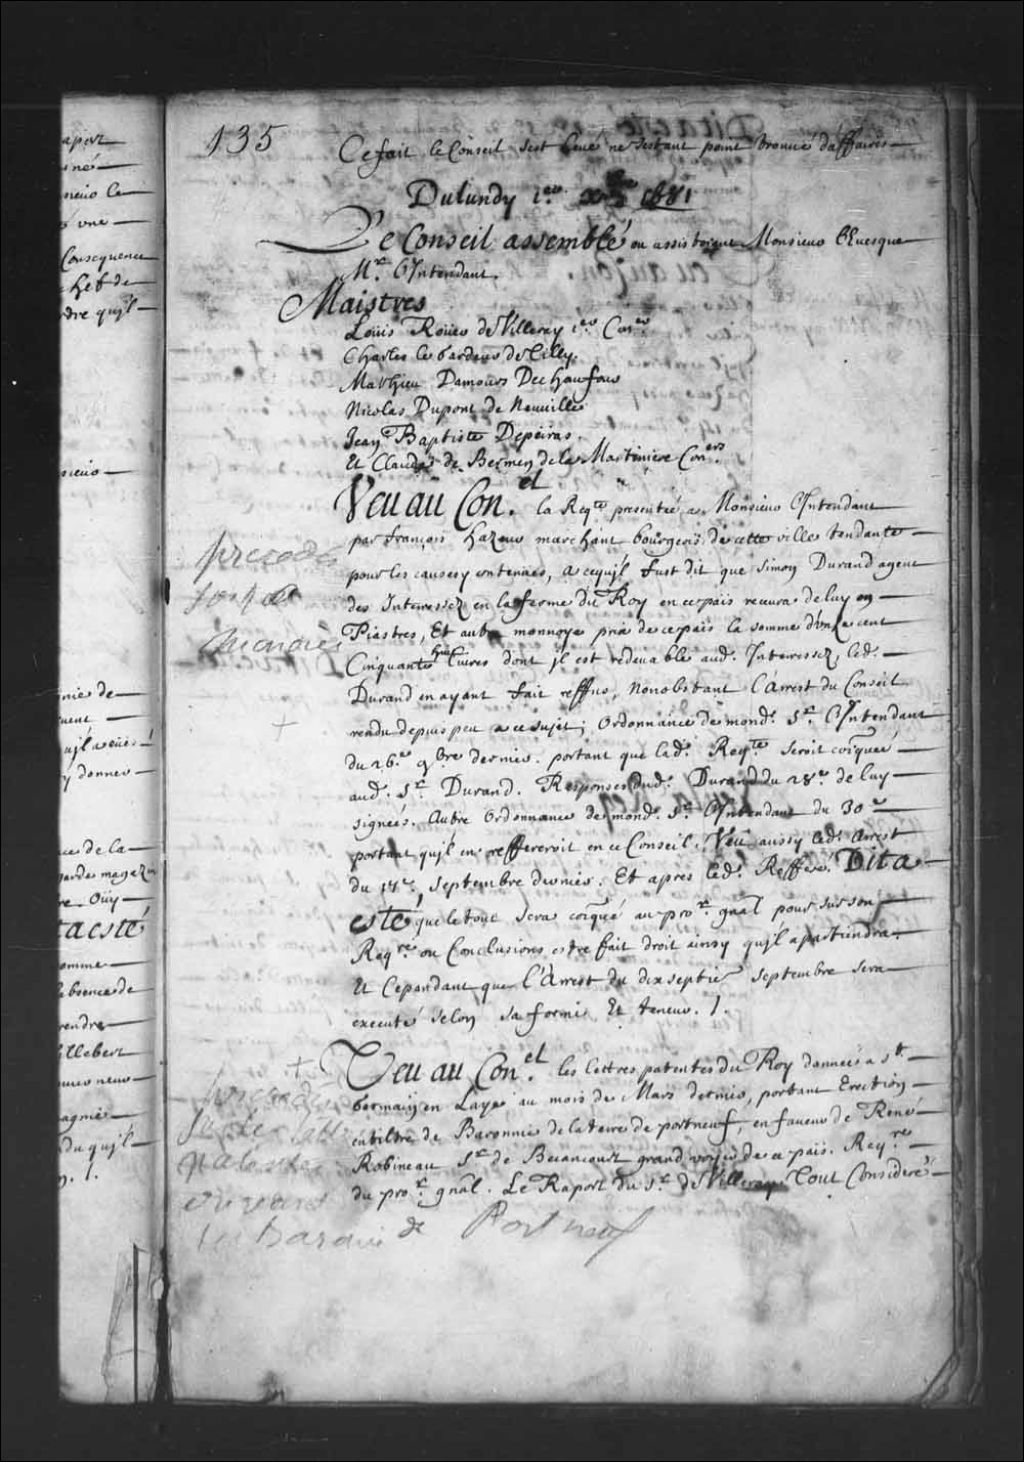 apor
135
Ce fait le Conseil sest levé ne sestant point trouvé d'affaires
Du lundy 1er. xbre 1681
Le Conseil assemblé ou assistoient Monsieur l'Evesque
Mr. l'Intendant.
Maistres
Loüis Roüer de Villeray 1er Conser
Charles le gardeur de Tilly.
Mathieu Damours Deschaufour
Nicolas Dupont de Neuuille
Jean Baptiste Depeiras.
Et Claude de Bermen de la Martiniere Coners
Veu au Con.el la Reqte presentée a Monsieur l'Intendant
par françois hazeur marchant bourgeois de cette ville tendante
pour les causes y contenües, a cequ'jl fust dit que Simon Durand agent
des Interressez en la ferme du Roy en ce païs receura de luy en
Piastres, Et autre monnoye prix de ce païs la somme d'onze cent
Cinquante huit Liures dont jl est redeuable aud. Interressez, led.
Durand en ayant fait reffus, Nonobstant l'arrest du Conseil
rendu depuis peu a ce sujet; ordonnance de mond. Sr. l'Intendant
du 26e. 9bre dernier. portant que lad. Reqte. seroit coiquée
aud. Sr. Durand. Responses dud. Durand du 28e. de luy
signées. autre ordonnance de mond. Sr. l'Intendant du 30e
portant qu'jl en reffereroit en ce Conseil. Veu aussy led. arrest
du 17e. septembre dernier. Et apres led. Refferé. Dit a
esté que le tout sera coiqué au pror. gnal pour sur son
Reqre ou Conclusions estre fait droit ainsy qu'jl apartiendra
Et Cependant que l'Arrest du dix septie. septembre sera
executé selon sa forme Et teneur. /.
Veu au Con.el les lettres patentes du Roy données a St.
Germain en Laye au mois de Mars dernier, portant Erection
en tiltre de Baronnie de la terre de portneuf, en faueur de René
Robineau Sr de Becancourt grand voyer de ce païs. Reqre
du pror. gnal. Le Raport du Sr. de Villeray. Tout Consideré
de Portneuf
Consequence
dre qujl
nie de
y donner
ce de la
garde magazin
re. Oüy
ta esté
absence de
rendre
illebert
du qujl